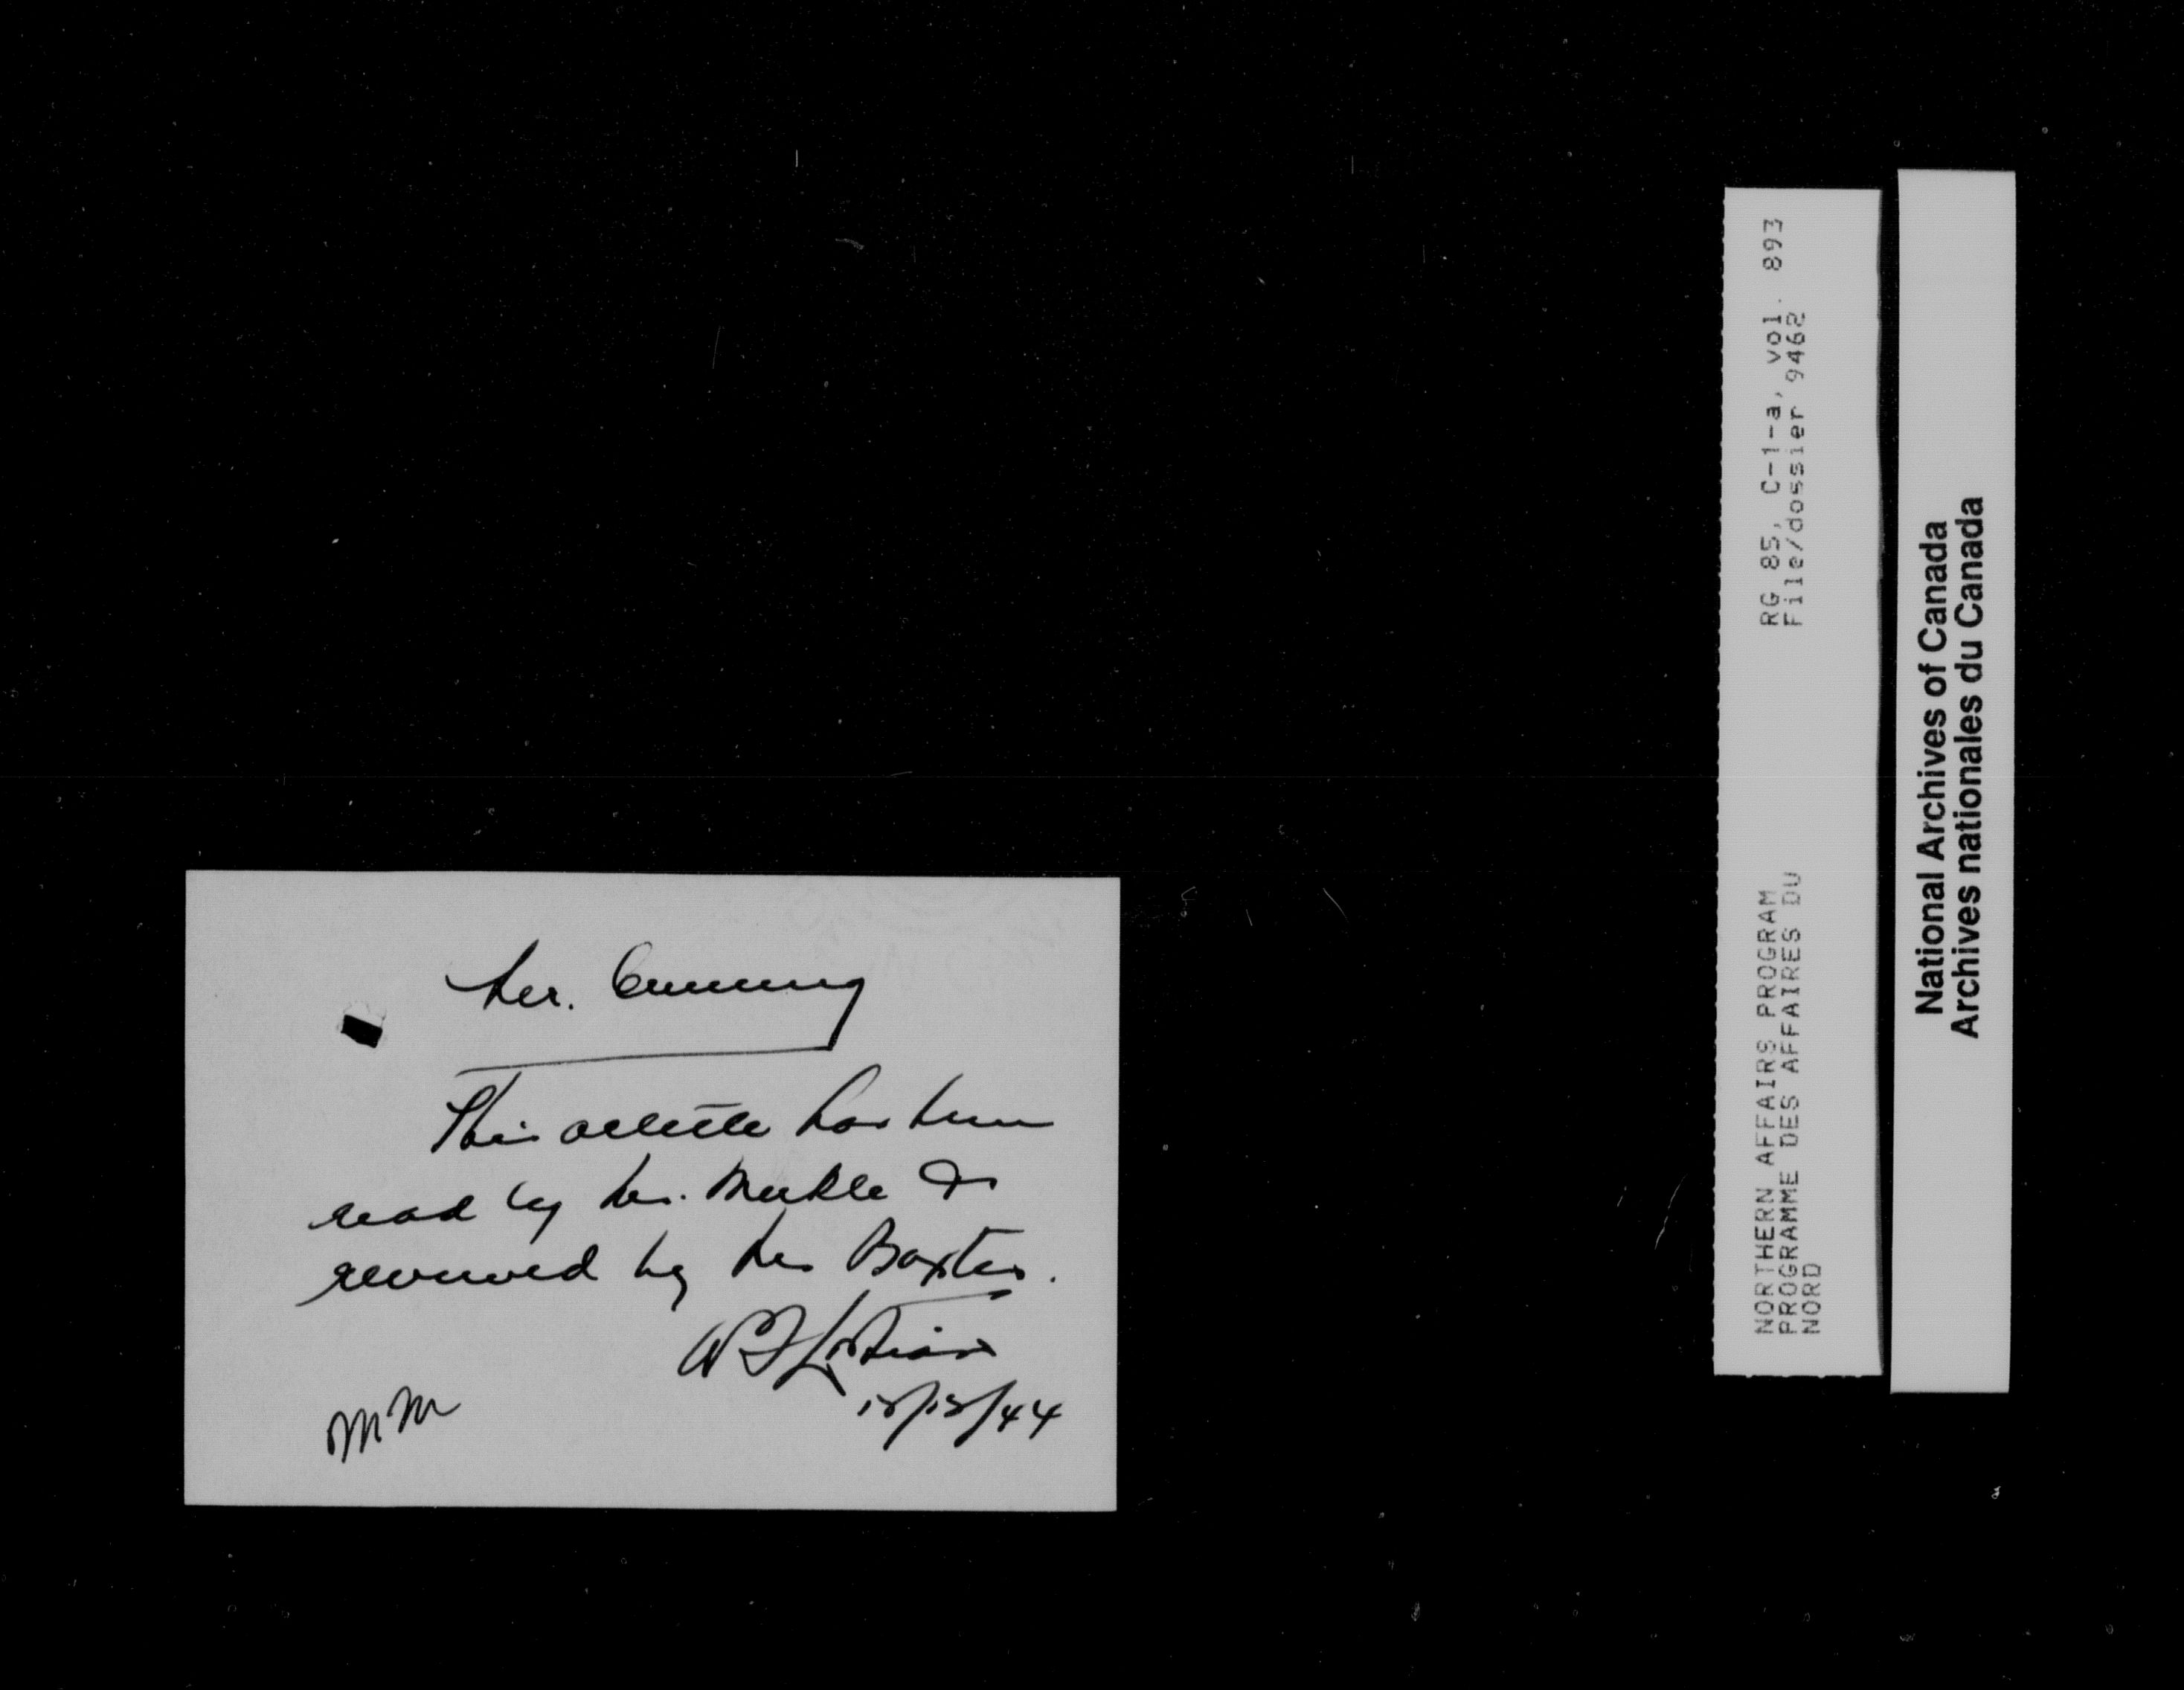 Mr. Cumming
This article has been
read by Mr. Meikle &
reviewed by Mr Baxter.
WF Lothian
/44
MM
RG 85, C-1-a, vol. 893
File/dossier 9462
NORTHERN AFFAIRS PROGRAM
PROGRAMME DES AFFAIRES DU
NORD
National Archives of Canada
Archives nationales du Canada